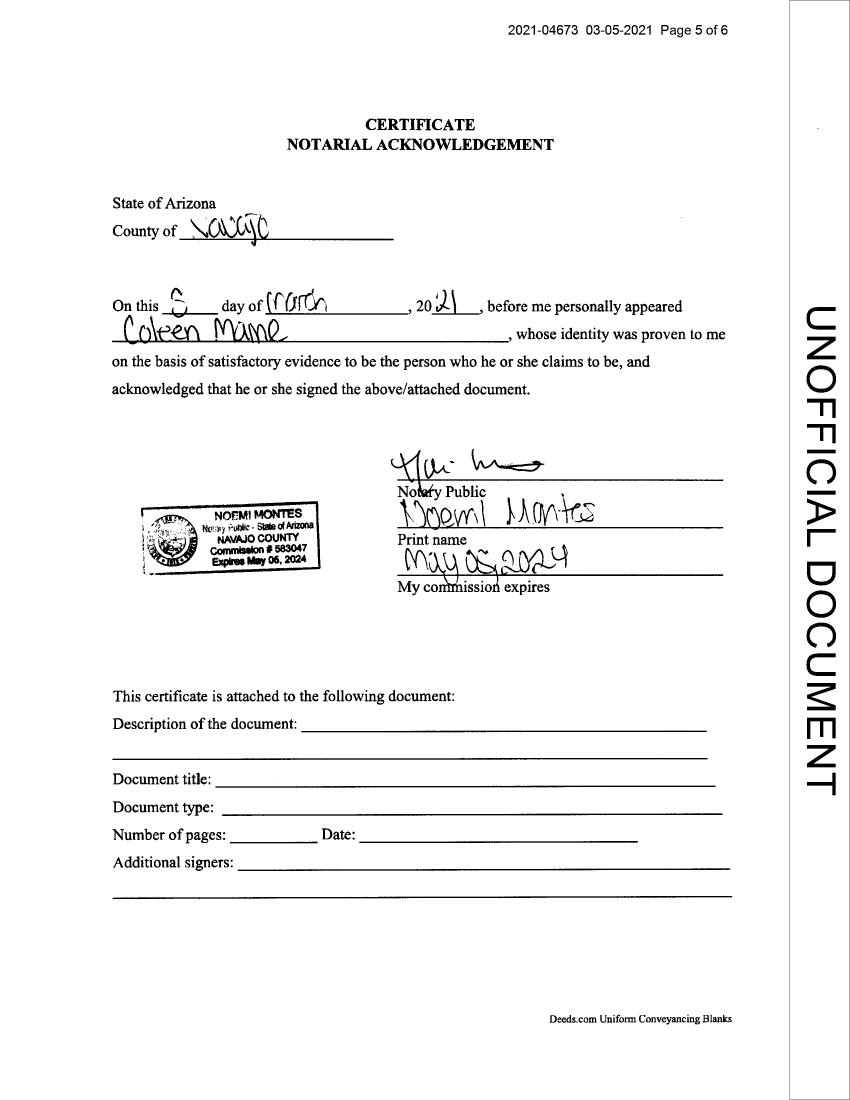 2021-04673 03-05-2021 Page 5 of 6
CERTIFICATE
NOTARIAL ACKNOWLEDGEMENT
State of Arizona
County of Navajo
On this 5 day of March, 2021, before me personally appeared
Coleen Mime, whose identity was proven to me
on the basis of satisfactory evidence to be the person who he or she claims to be, and
acknowledged that he or she signed the above/attached document.
Notary Public
Noemi Montes
Print name
May 05, 2024
My commission expires
NOEMI MONTES
Notary Public - State of Arizona
NAVAJO COUNTY
Commission # 583047
Expires May 05, 2024
This certificate is attached to the following document:
Description of the document:
Document title:
Document type:
Number of pages: Date:
Additional signers:
Deeds.com Uniform Conveyancing Blanks
UNOFFICIAL DOCUMENT